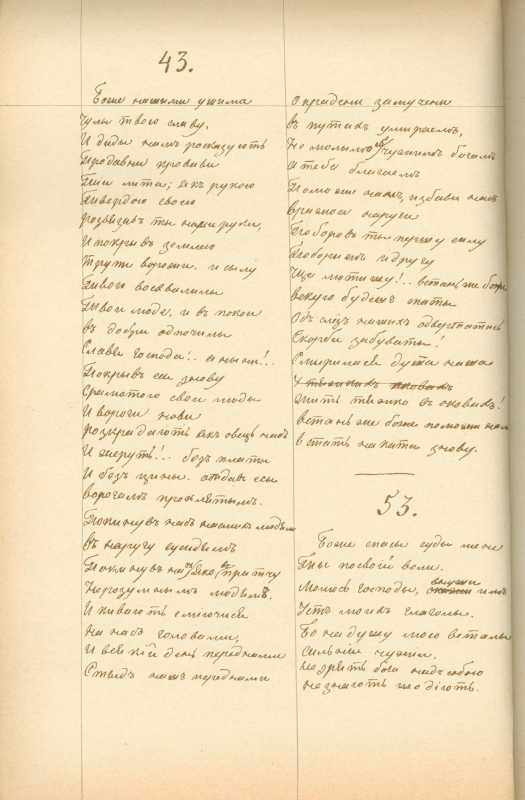 43.
Боже нашими ушима
Чулы твою славу,
И диды намъ росказують
Про давни кровави
Тыи лита; якъ рукою
Твердою своею
Розвязавъ ты наши руки,
И покрывъ землею
Трупы ворожи. и сылу
Твою восхвалылы
Твои люде, и въ покои
въ добри одпочилы
Славя Господа!.. а ныни!..
Покрывъ еси знову
Срамотою свои люды
И вороги нови
Розкрадають якъ овець насъ
И жеруть!.. безъ платы
И безъ цины. отдавъ есы
ворогамъ проклятымъ.
Покинувъ насъ на смихъ людямъ
въ наругу сусидамъ
Покинувъ насъ яко въ притчу
Нерозумнымъ людямъ.
И кивають смиючися
На насъ головами,
И всякий день передъ нами
Стыдъ нашъ передъ нами
Окрадени замучени
въ путахъ умираемъ,
Не молымось чужимъ богамъ
А тебе благаемъ
Поможи намъ, избави насъ
вражои наруги
Поборовъ ты першу силу
Побори жъ и другу
Ще лютишу!.. встань же боже
вскую будешъ спаты
Одъ слізъ нашихъ одвертатись
Скорби забувати!
Смирилася душа наша
У тяжкихъ оковахъ
Жить тяжко въ оковахъ!
встань же боже поможи намъ
встать на ката знову.
53.
Боже спаси суды мене
Ты по своій воли.
Молюсь Господы, внуши имъ
Устъ моихъ глаголы.
Бо на душу мою всталы
Сильнии чужии.
Не зрять бога надъ собою
не знають що діють.